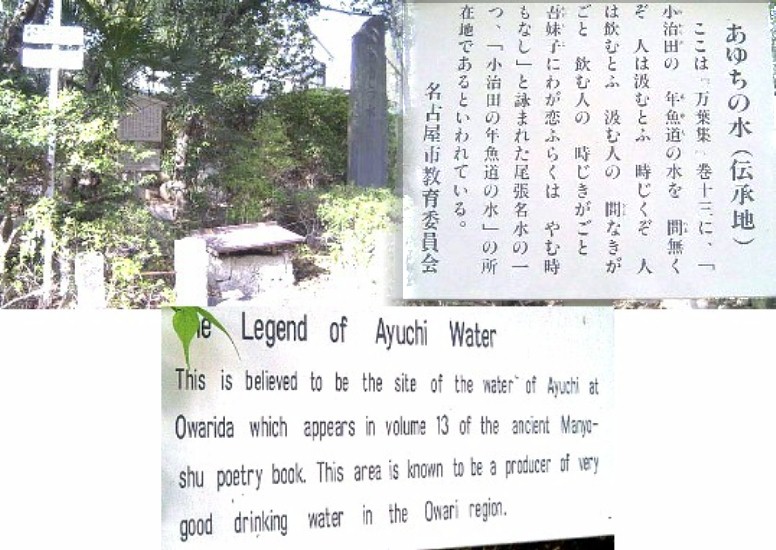 あゆちの水（伝承地）
ここは『万葉集』巻十三に、「
小治田の 年魚道の水を 問無く
ぞ 人は汲むとふ 時じくぞ 人
は飲むとふ 汲む人の 間なきが
ごと 飲む人の 時じきがごと
吾妹子にわが恋ふらくは やむ時
もなし」と詠まれた尾張名水の一
つ、「小治田の年魚道の水」の所
在地であるといわれている。
名古屋市教育委員会
Legend of Ayuchi Water
This is believed to be the site of the water of Ayuchi at
Owarida which appears in volume 13 of the ancient Manyo-
shu poetry book. This area is known to be a producer of very
good drinking water in the Owari region.